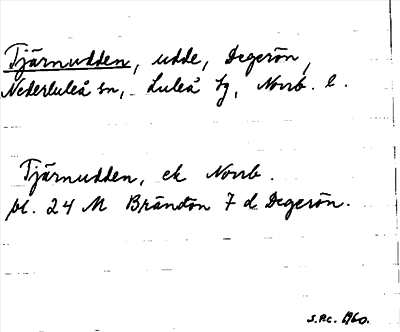 Tjärnudden, udde, Degerön,
Nederluleå sn, Luleå tg, Norrb. l.
Tjärnudden, ek Norrb.
bl. 24 M Brändön 7 d Degerön.
S.P.C. 1960.